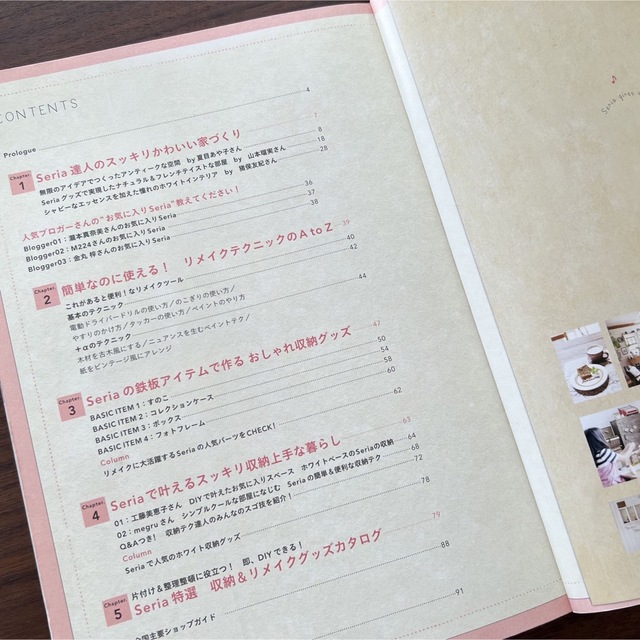 CONTENTS
Prologue 4
Chapter 1 Seria 達人のスッキリかわいい家づくり 7
無限のアイデアでつくったアンティークな空間 by 夏目あや子さん 8
Seria グッズで実現したナチュラル&フレンチテイストな部屋 by 山本瑠実さん 18
シャビーなエッセンスを加えた憧れのホワイトインテリア by 猪俣友紀さん 28
人気ブロガーさんの"お気に入りSeria"教えてください! 36
Blogger01:瀧本真奈美さんのお気に入りSeria 37
Blogger02:M224さんのお気に入りSeria 38
Blogger03:金丸 梓さんのお気に入りSeria
Chapter 2 簡単なのに使える! リメイクテクニックのA to Z 39
これがあると便利!なリメイクツール 40
基本のテクニック 42
電動ドライバードリルの使い方/のこぎりの使い方/
やすりのかけ方/タッカーの使い方/ペイントのやり方
+αのテクニック 44
木材を古木風にする/ニュアンスを生むペイントテク/
紙をビンテージ風にアレンジ
Chapter 3 Seriaの鉄板アイテムで作る おしゃれ収納グッズ 47
BASIC ITEM 1:すのこ 50
BASIC ITEM 2:コレクションケース 54
BASIC ITEM 3:ボックス 58
BASIC ITEM 4:フォトフレーム 60
Column
リメイクに大活躍するSeriaの人気パーツをCHECK! 62
Chapter 4 Seriaで叶えるスッキリ収納上手な暮らし 63
01:工藤美恵子さん DIYで叶えたお気に入りスペース ホワイトベースのSeriaの収納 64
02:megruさん シンプルクールな部屋になじむ Seriaの簡単&便利な収納テク 68
Q&Aつき! 収納テク達人のみんなのスゴ技を紹介! 72
Column
Seriaで人気のホワイト収納グッズ 78
Chapter 5 片付け&整理整頓に役立つ! 即、DIYできる! 79
Seria特選 収納&リメイクグッズカタログ
88
全国主要ショップガイド 91
♪
Seria gives